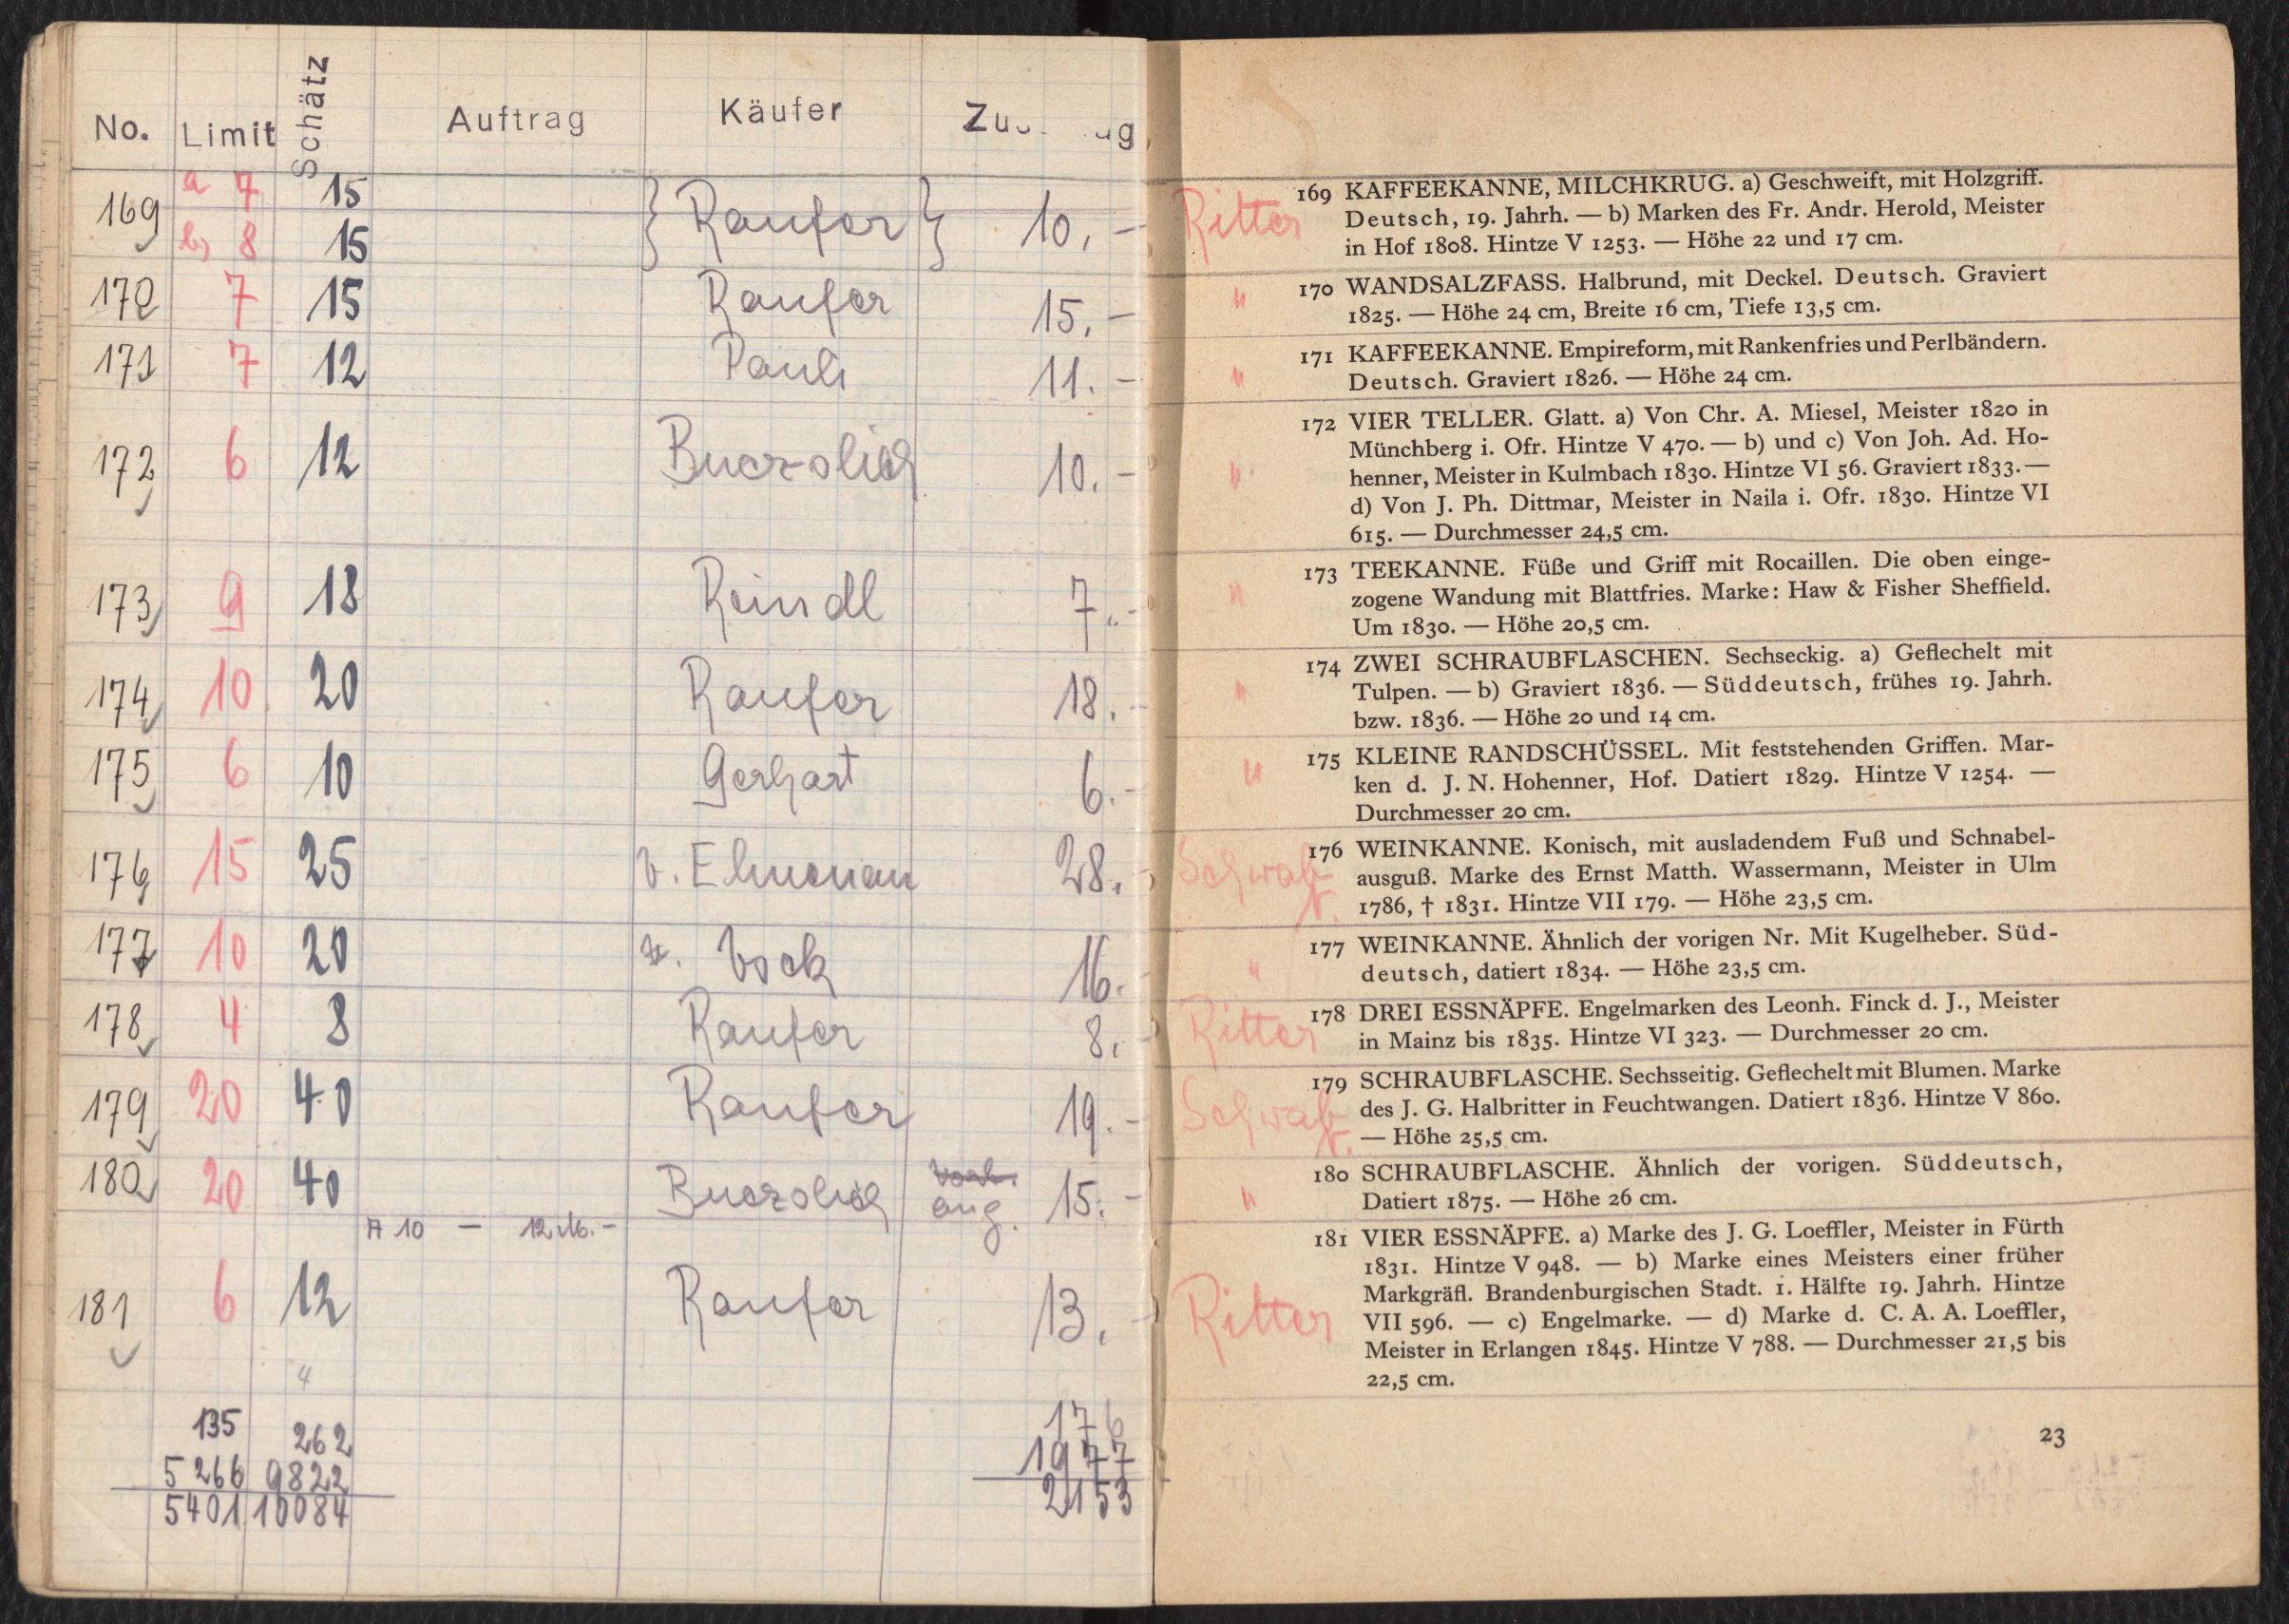 No. Limit Schätz Auftrag Käufer
169 a 7 15 Raufer 10.–
b) 8 15
170 7 15 Raufer 15.–
171 7 12 Pauli 11.–
172 6 12 10.–
173 9 18 Reindl 7.–
174 10 20 Raufer 18.–
175 6 10 Gerhart 6.–
176 15 25 28.
177 10 20 16.
178 4 8 Raufer 8.
179 20 40 Raufer 19.–
180 20 40 15.–
181 6 12 Raufer 13.
4
135 262 176
5266 9822 1977
5401 10084 2153
Ritter
169 KAFFEEKANNE, MILCHKRUG. a) Geschweift, mit Holzgriff.
Deutsch, 19. Jahrh. — b) Marken des Fr. Andr. Herold, Meister
in Hof 1808. Hintze V 1253. — Höhe 22 und 17 cm.
"
170 WANDSALZFASS. Halbrund, mit Deckel. Deutsch. Graviert
1825. — Höhe 24 cm, Breite 16 cm, Tiefe 13,5 cm.
"
171 KAFFEEKANNE. Empireform, mit Rankenfries und Perlbändern.
Deutsch. Graviert 1826. — Höhe 24 cm.
"
172 VIER TELLER. Glatt. a) Von Chr. A. Miesel, Meister 1820 in
Münchberg i. Ofr. Hintze V 470. — b) und c) Von Joh. Ad. Ho-
henner, Meister in Kulmbach 1830. Hintze VI 56. Graviert 1833. —
d) Von J. Ph. Dittmar, Meister in Naila i. Ofr. 1830. Hintze VI
615. — Durchmesser 24,5 cm.
"
173 TEEKANNE. Füße und Griff mit Rocaillen. Die oben einge-
zogene Wandung mit Blattfries. Marke: Haw & Fisher Sheffield.
Um 1830. — Höhe 20,5 cm.
"
174 ZWEI SCHRAUBFLASCHEN. Sechseckig. a) Geflechelt mit
Tulpen. — b) Graviert 1836. — Süddeutsch, frühes 19. Jahrh.
bzw. 1836. — Höhe 20 und 14 cm.
"
175 KLEINE RANDSCHÜSSEL. Mit feststehenden Griffen. Mar-
ken d. J. N. Hohenner, Hof. Datiert 1829. Hintze V 1254. —
Durchmesser 20 cm.
Schwab
176 WEINKANNE. Konisch, mit ausladendem Fuß und Schnabel-
ausguß. Marke des Ernst Matth. Wassermann, Meister in Ulm
1786, † 1831. Hintze VII 179. — Höhe 23,5 cm.
"
177 WEINKANNE. Ähnlich der vorigen Nr. Mit Kugelheber. Süd-
deutsch, datiert 1834. — Höhe 23,5 cm.
Ritter
178 DREI ESSNÄPFE. Engelmarken des Leonh. Finck d. J., Meister
in Mainz bis 1835. Hintze VI 323. — Durchmesser 20 cm.
Schwab
179 SCHRAUBFLASCHE. Sechsseitig. Geflechelt mit Blumen. Marke
des J. G. Halbritter in Feuchtwangen. Datiert 1836. Hintze V 860.
— Höhe 25,5 cm.
"
180 SCHRAUBFLASCHE. Ähnlich der vorigen. Süddeutsch,
Datiert 1875. — Höhe 26 cm.
Ritter
181 VIER ESSNÄPFE. a) Marke des J. G. Loeffler, Meister in Fürth
1831. Hintze V 948. — b) Marke eines Meisters einer früher
Markgräfl. Brandenburgischen Stadt. 1. Hälfte 19. Jahrh. Hintze
VII 596. — c) Engelmarke. — d) Marke d. C. A. A. Loeffler,
Meister in Erlangen 1845. Hintze V 788. — Durchmesser 21,5 bis
22,5 cm.
23